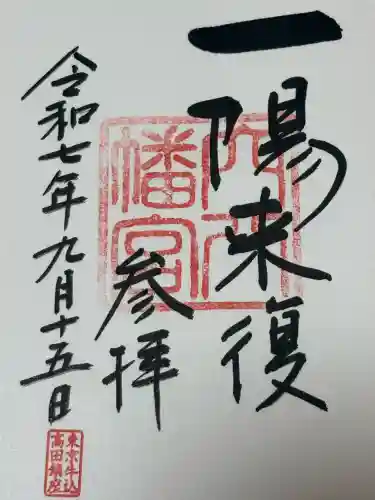 一陽来復
参拝
令和七年九月十五日
穴八幡宮
東京牛込
高田鎮座